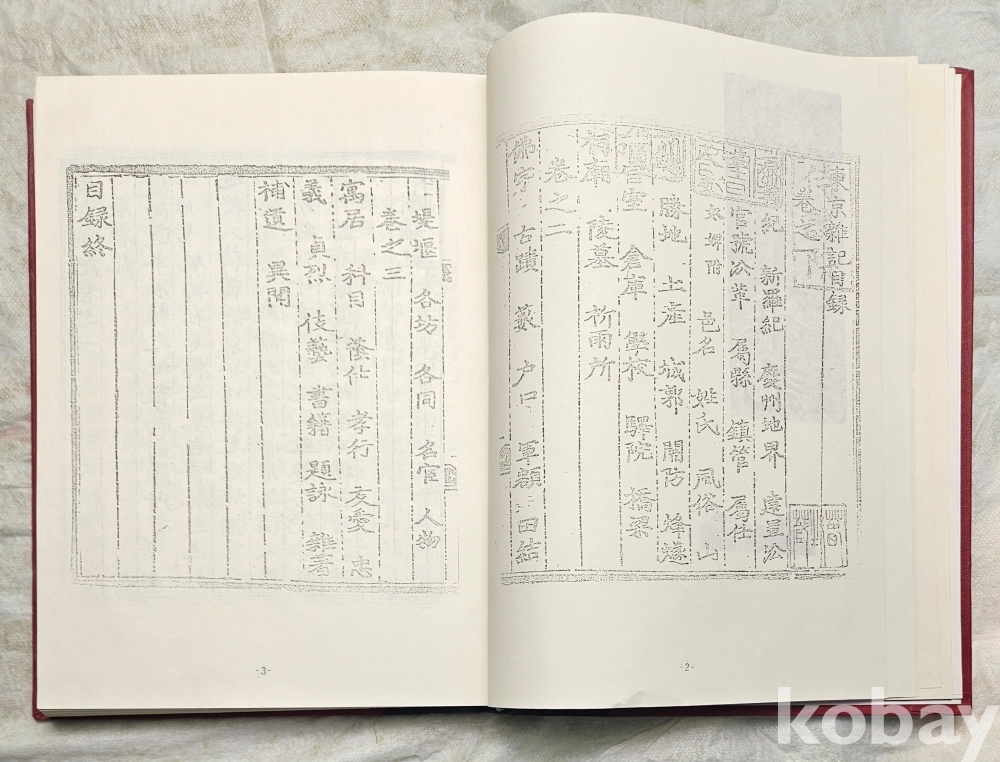 東京雜記目錄
卷之一
紀 新羅紀 慶州地界 建置沿
官號沿革 屬縣 鎭管 屬任
袁婦附 邑名 姓氏 風俗 山
勝地 土産 城郭 關防 烽燧
宮室 倉庫 學校 驛院 橋梁
祠廟 陵墓 祈雨所
卷之二
佛宇 古蹟 藪 户口 軍額 田結
堤堰 各坊 各同 名宦 人物
卷之三
寓居 科目 蔭仕 孝行 友愛 忠
義 貞烈 伎藝 書籍 題詠 雜著
補遺 異聞
目録終
-3-
-2-
kobay